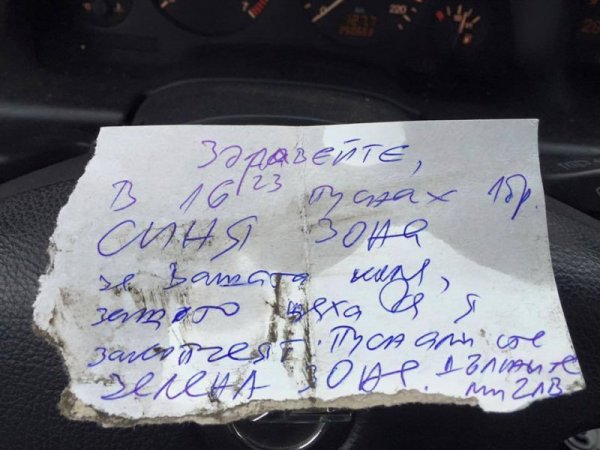 Здравейте,
В 16 23 пуснах 1бр.
СИНЯ ЗОНА
за Вашата кола,
защото щяха да я
закопчеят. Пуснали сте
ЗЕЛЕНА ЗОНА. Дължите
ми 2лв
220